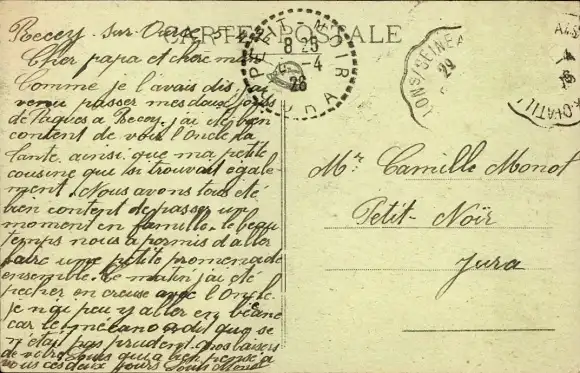 CARTE POSTALE
Recey-sur-Ource 5-4-26
Cher papa et chère mère
Comme je l'avais dis, j'ai
venu passer mes deux jours
de Pâques a Recey, j'ai été bien
content de voir l'Oncle, la
Tante, ainsi que ma petite
cousine qui s'i trouvait égale-
ment. Nous avons tous été
bien content de passer un
moment en famille, le beau
temps nous a permis d'aller
faire une petite promenade
ensemble. Ce matin j'ai été
pecher en creuse avec l'Oncle.
je n'ai peu y aller en
car le mécano a dit que se
n'était pas prudent. Gros baisers
de votre Louis qui a bien pensé a
vous ces deux jours Louis
PETIT-NOIR
8 25
5-4
26
JURA
29
Mr. Camille Monot
Petit-Noir
Jura